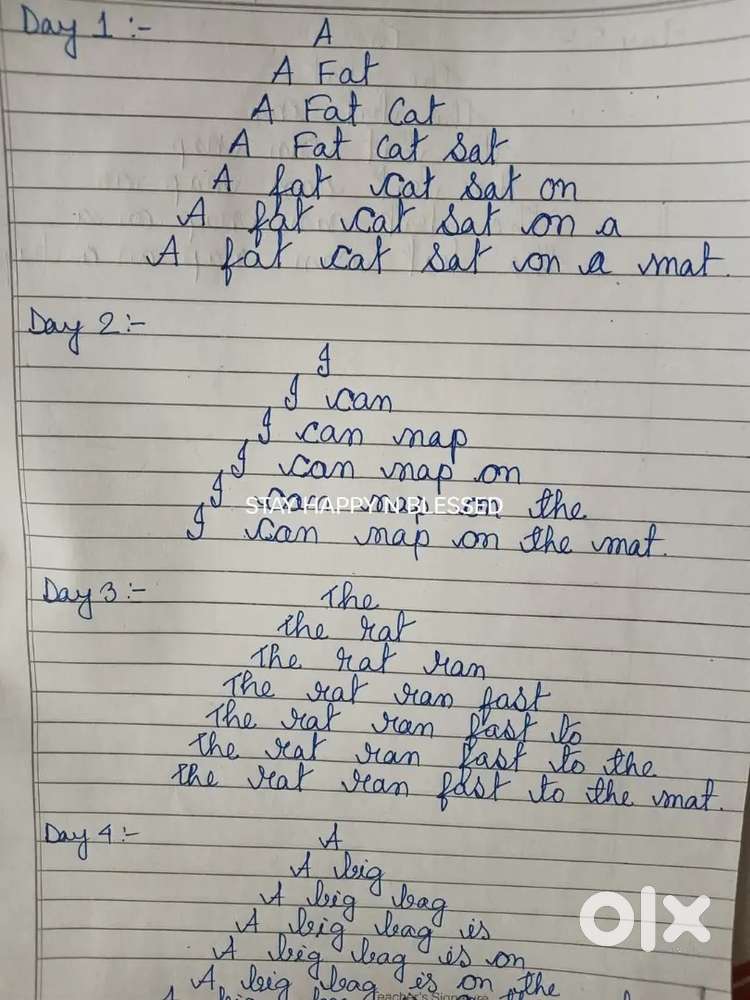 Day 1 :- A
A Fat
A Fat Cat
A Fat Cat sat
A fat cat sat on
A fat cat sat on a
A fat cat sat on a mat.
Day 2 :-
I
I can
I can nap
I can nap on
I can nap on the
STAY HAPPY N BLESSED
I can nap on the mat.
Day 3 :- The
the rat
The rat ran
The rat ran fast
The rat ran fast to
the rat ran fast to the
the rat ran fast to the mat.
Day 4 :- A
A big
A big bag
A big bag is
A big bag is on
A big bag is on the
olx
Teacher's Signature